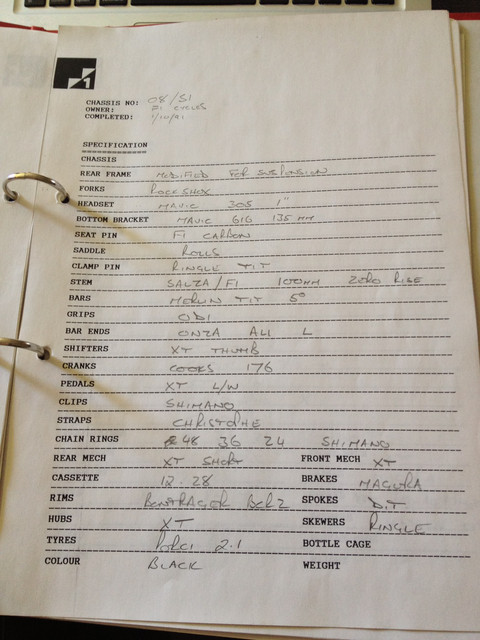 1
CHASSIS NO: 08/S1
OWNER: F1 CYCLES
COMPLETED: 1/10/91
SPECIFICATION
CHASSIS
REAR FRAME MODIFIED FOR SUSPENSION
FORKS ROCKSHOX
HEADSET MAVIC 305 1"
BOTTOM BRACKET MAVIC 616 135 MM
SEAT PIN F1 CARBON
SADDLE ROLLS
CLAMP PIN RINGLE TIT
STEM SALZA/F1 100MM ZERO RISE
BARS MERLIN TIT 5°
GRIPS ODI
BAR ENDS ONZA ALI L
SHIFTERS XT THUMB
CRANKS COOKS 176
PEDALS XT L/W
CLIPS SHIMANO
STRAPS CHRISTOPHE
CHAIN RINGS 48 36 24 SHIMANO
REAR MECH XT SHORT FRONT MECH XT
CASSETTE 12.28 BRAKES MAGURA
RIMS BONTRAGER BCR2 SPOKES D.T
HUBS XT SKEWERS RINGLE
TYRES 2.1 BOTTLE CAGE
COLOUR BLACK WEIGHT